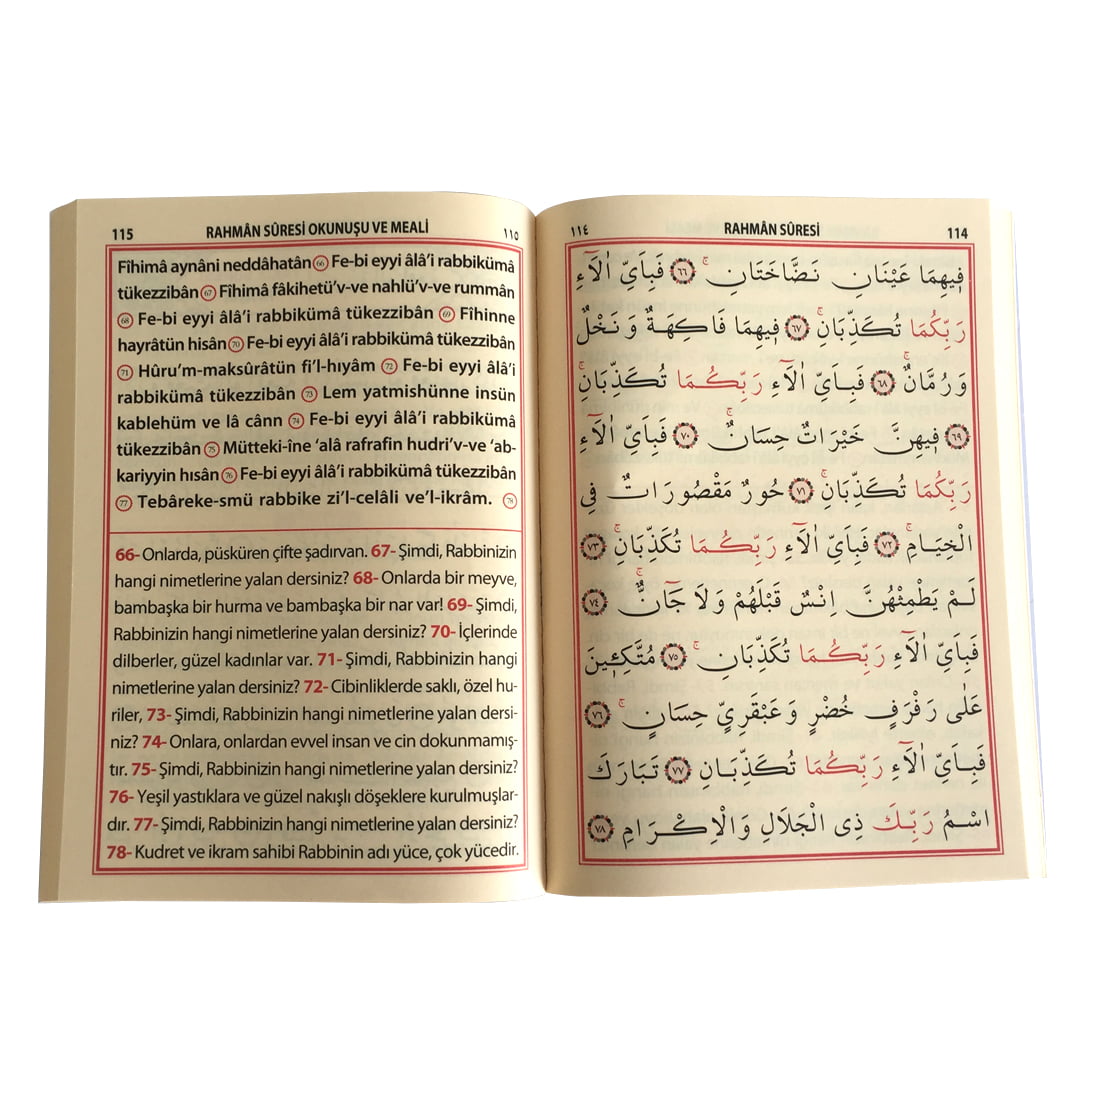 115 RAHMÂN SÛRESİ OKUNUŞU VE MEALİ ١١٥
Fîhimâ aynâni neddâhatân 66 Fe-bi eyyi âlâ’i rabbikümâ
tükezzibân 67 Fîhimâ fâkihetü’v-ve nahlü’v-ve rummân
68 Fe-bi eyyi âlâ’i rabbikümâ tükezzibân 69 Fîhinne
hayrâtün hisân 70 Fe-bi eyyi âlâ’i rabbikümâ tükezzibân
71 Hûru’m-maksûrâtün fi’l-hıyâm 72 Fe-bi eyyi âlâ’i
rabbikümâ tükezzibân 73 Lem yatmishünne insün
kablehüm ve lâ cânn 74 Fe-bi eyyi âlâ’i rabbikümâ
tükezzibân 75 Mütteki-îne ‘alâ rafrafin hudri’v-ve ‘ab-
kariyyin hısân 76 Fe-bi eyyi âlâ’i rabbikümâ tükezzibân
77 Tebâreke-smü rabbike zi’l-celâli ve’l-ikrâm. 78
66- Onlarda, püsküren çifte şadırvan. 67- Şimdi, Rabbinizin
hangi nimetlerine yalan dersiniz? 68- Onlarda bir meyve,
bambaşka bir hurma ve bambaşka bir nar var! 69- Şimdi,
Rabbinizin hangi nimetlerine yalan dersiniz? 70- İçlerinde
dilberler, güzel kadınlar var. 71- Şimdi, Rabbinizin hangi
nimetlerine yalan dersiniz? 72- Cibinliklerde saklı, özel hu-
riler, 73- Şimdi, Rabbinizin hangi nimetlerine yalan dersi-
niz? 74- Onlara, onlardan evvel insan ve cin dokunmamış-
tır. 75- Şimdi, Rabbinizin hangi nimetlerine yalan dersiniz?
76- Yeşil yastıklara ve güzel nakışlı döşeklere kurulmuşlar-
dır. 77- Şimdi, Rabbinizin hangi nimetlerine yalan dersiniz?
78- Kudret ve ikram sahibi Rabbinin adı yüce, çok yücedir.
١١٤ RAHMÂN SÛRESİ 114
فِيهِمَا عَيْنَانِ نَضَّاخَتَانِۚ ٦٦ فَبِاَيِّ اٰلَٓاءِ
رَبِّكُمَا تُكَذِّبَانِۚ ٦٧ فِيهِمَا فَاكِهَةٌ وَنَخْلٌ
وَرُمَّانٌۚ ٦٨ فَبِاَيِّ اٰلَٓاءِ رَبِّكُمَا تُكَذِّبَانِۚ
٦٩ فِيهِنَّ خَيْرَاتٌ حِسَانٌۚ ٧٠ فَبِاَيِّ اٰلَٓاءِ
رَبِّكُمَا تُكَذِّبَانِۚ ٧١ حُورٌ مَقْصُورَاتٌ فِي
الْخِيَامِۚ ٧٢ فَبِاَيِّ اٰلَٓاءِ رَبِّكُمَا تُكَذِّبَانِۚ ٧٣
لَمْ يَطْمِثْهُنَّ اِنْسٌ قَبْلَهُمْ وَلَا جَٓانٌّۚ ٧٤
فَبِاَيِّ اٰلَٓاءِ رَبِّكُمَا تُكَذِّبَانِۚ ٧٥ مُتَّكِـِٔينَ
عَلٰى رَفْرَفٍ خُضْرٍ وَعَبْقَرِيٍّ حِسَانٍۚ ٧٦
فَبِاَيِّ اٰلَٓاءِ رَبِّكُمَا تُكَذِّبَانِ ٧٧ تَبَارَكَ
اسْمُ رَبِّكَ ذِي الْجَلَالِ وَالْاِكْرَامِ ٧٨